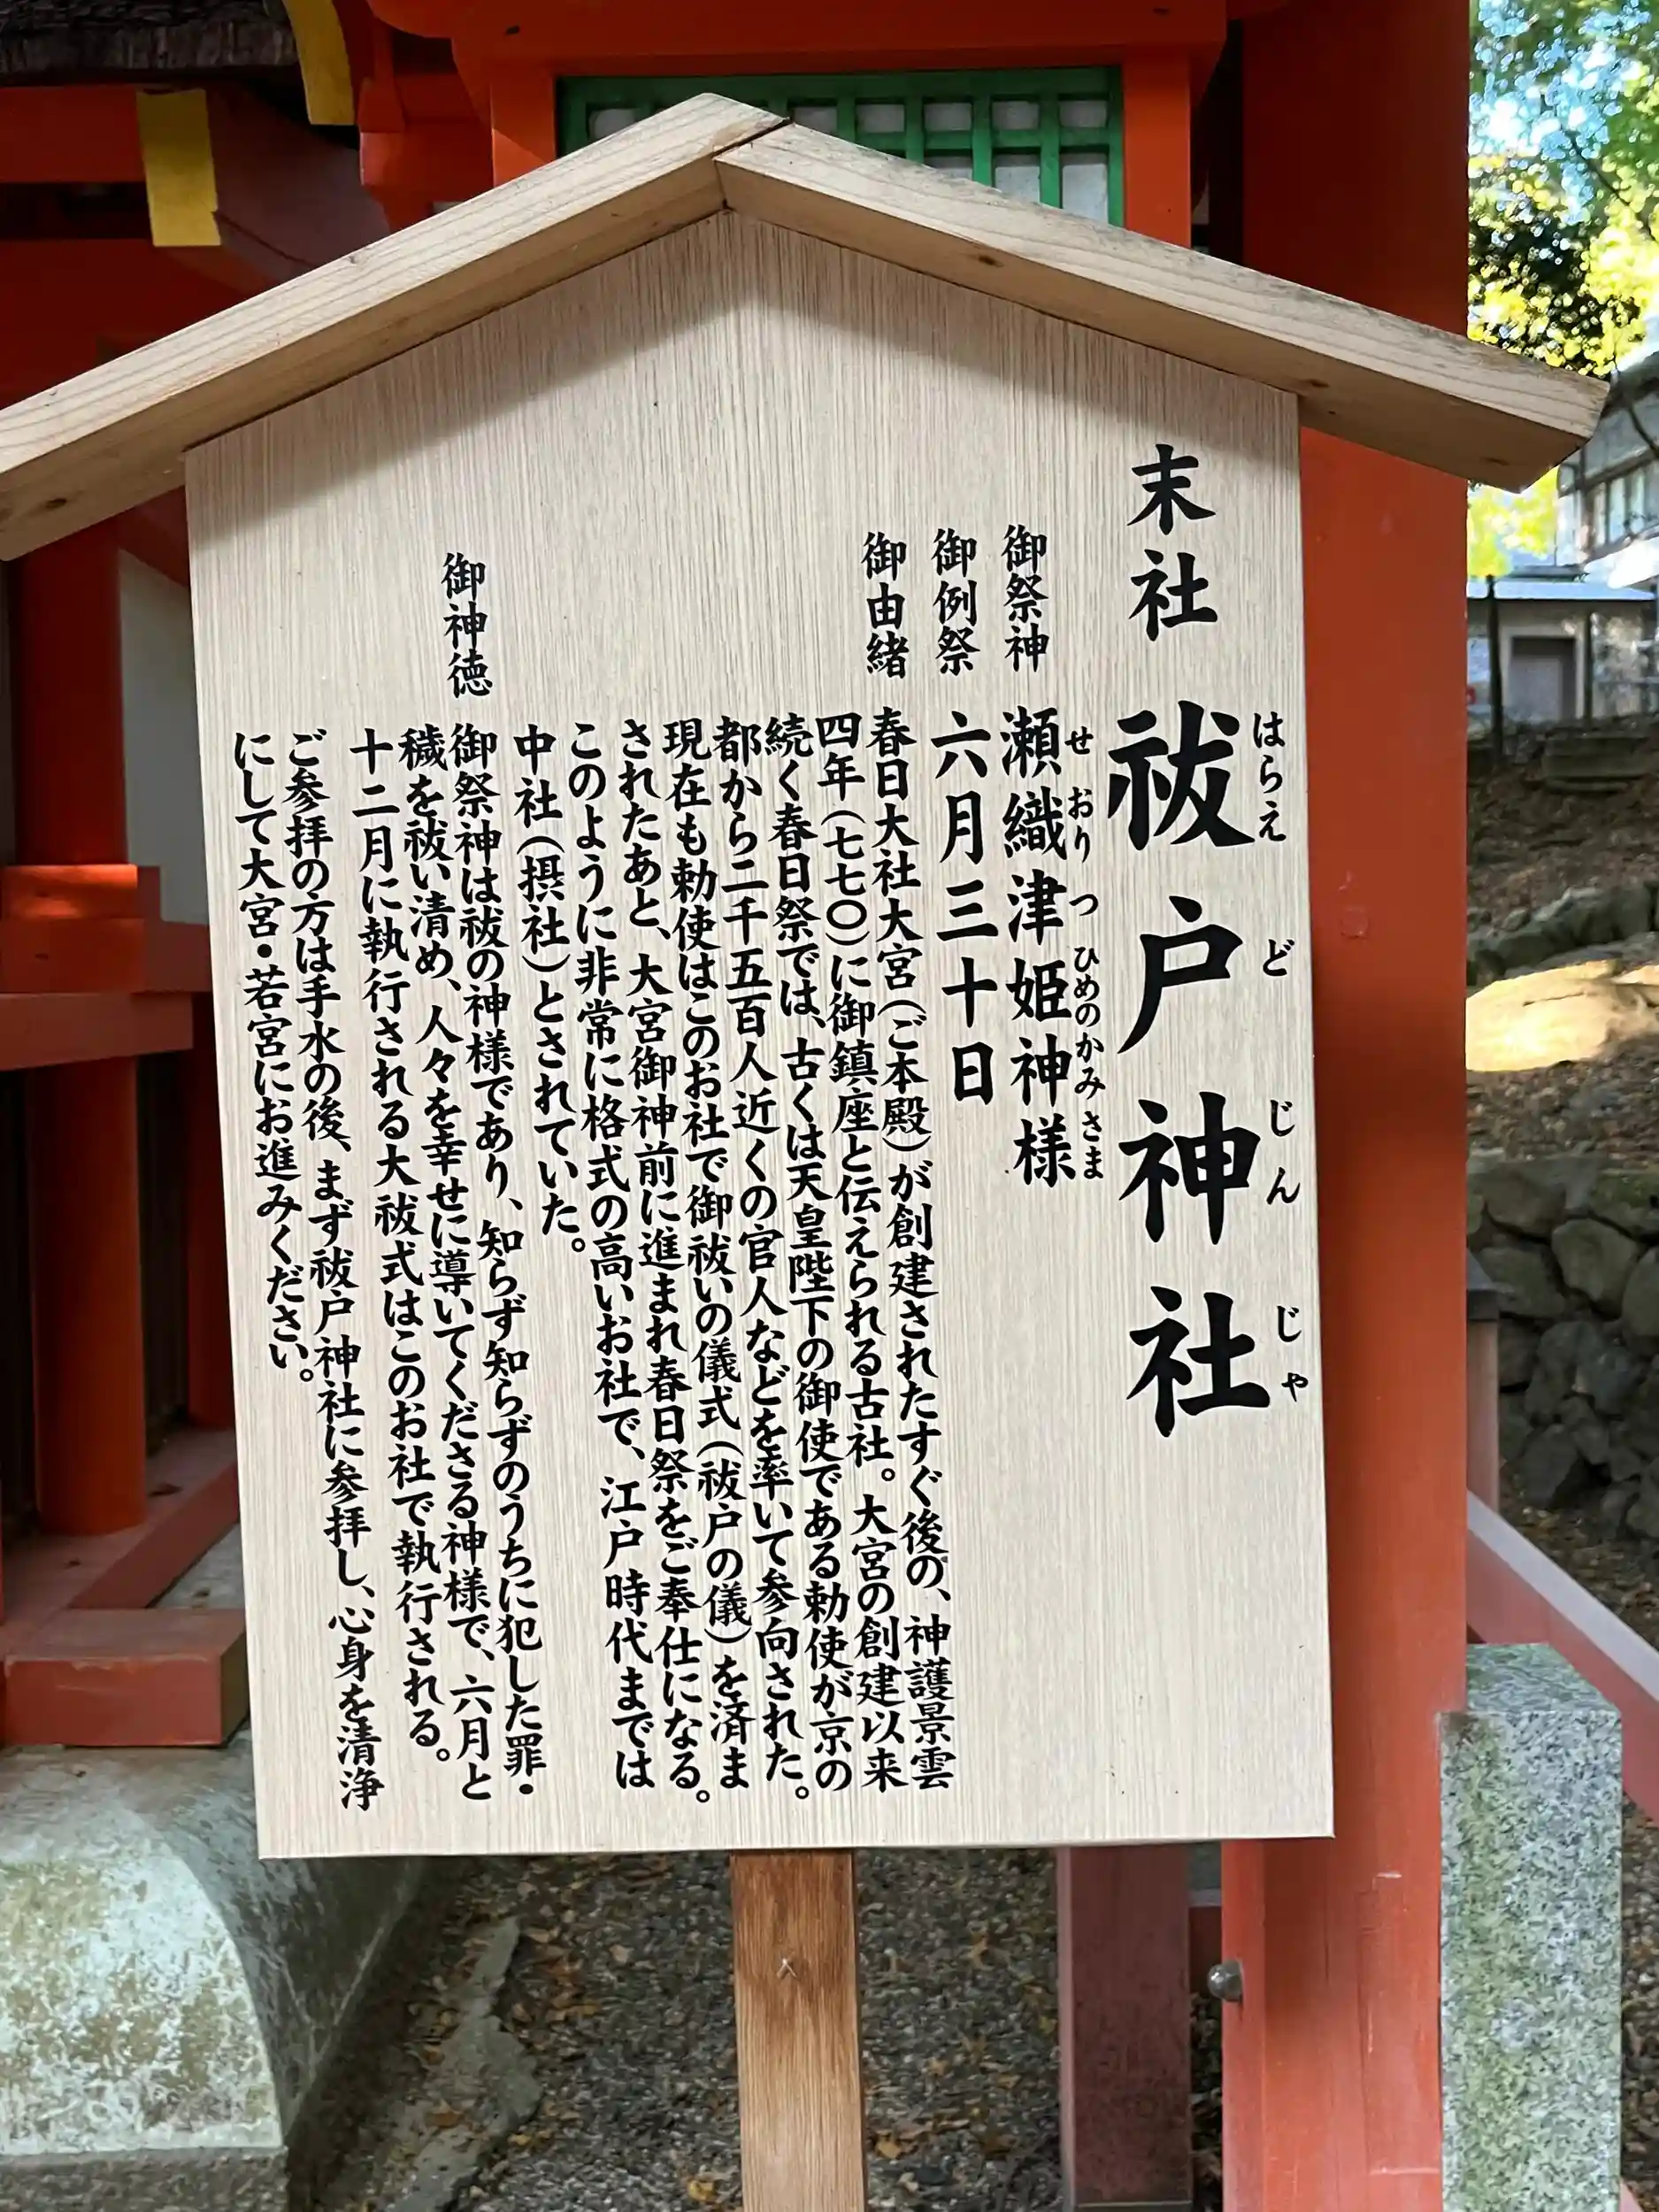 末社 祓戸神社
はらえ ど じん じゃ
御祭神 瀬織津姫神様
せ おり つ ひめのかみ さま
御例祭 六月三十日
御由緒 春日大社大宮(ご本殿)が創建されたすぐ後の、神護景雲
四年(七七〇)に御鎮座と伝えられる古社。大宮の創建以来
続く春日祭では、古くは天皇陛下の御使である勅使が京の
都から二千五百人近くの官人などを率いて参向された。
現在も勅使はこのお社で御祓いの儀式(祓戸の儀)を済ま
されたあと、大宮御神前に進まれ春日祭をご奉仕になる。
このように非常に格式の高いお社で、江戸時代までは
中社(摂社)とされていた。
御神徳 御祭神は祓の神様であり、知らず知らずのうちに犯した罪・
穢を祓い清め、人々を幸せに導いてくださる神様で、六月と
十二月に執行される大祓式はこのお社で執行される。
ご参拝の方は手水の後、まず祓戸神社に参拝し、心身を清浄
にして大宮・若宮にお進みください。